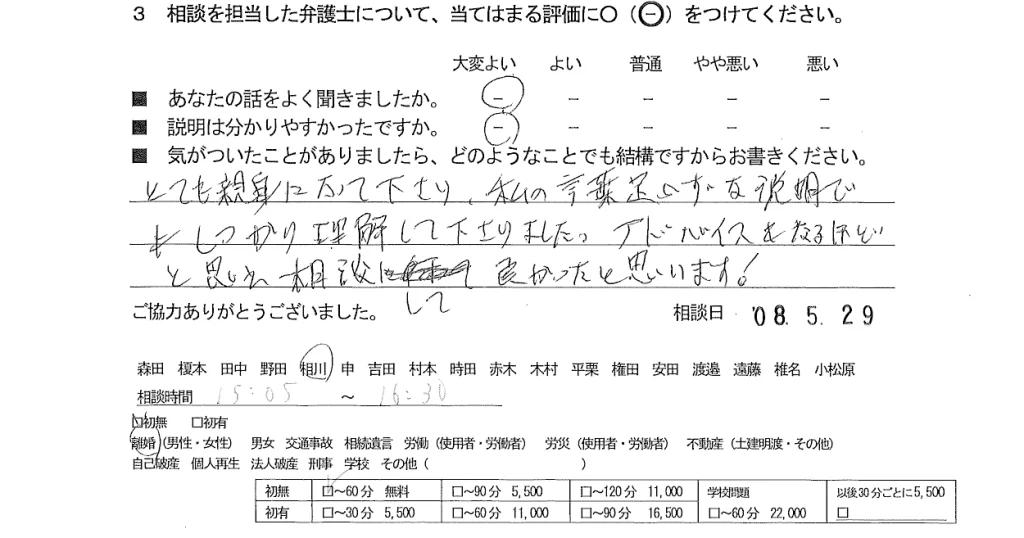 3 相談を担当した弁護士について、当てはまる評価に○（㊀）をつけてください。
大変よい よい 普通 やや悪い 悪い
■ あなたの話をよく聞きましたか。 － － － － －
■ 説明は分かりやすかったですか。 － － － － －
■ 気がついたことがありましたら、どのようなことでも結構ですからお書きください。
とても親身になって下さり、私の言葉足らずな説明で
もしっかり理解して下さりました。アドバイスもなるほど
と思い、相談 良かったと思います!
して
ご協力ありがとうございました。 相談日 '08. 5. 29
森田 榎本 田中 野田 相川 申 吉田 村本 時田 赤木 木村 平栗 権田 安田 渡邉 遠藤 椎名 小松原
相談時間 15:05 ～ 16:30
□初無 □初有
離婚（男性・女性） 男女 交通事故 相続遺言 労働（使用者・労働者） 労災（使用者・労働者） 不動産（土建明渡・その他）
自己破産 個人再生 法人破産 刑事 学校 その他（ ）
初無 □～60分 無料 □～90分 5,500 □～120分 11,000 学校問題 以後30分ごとに5,500
初有 □～30分 5,500 □～60分 11,000 □～90分 16,500 □～60分 22,000 □